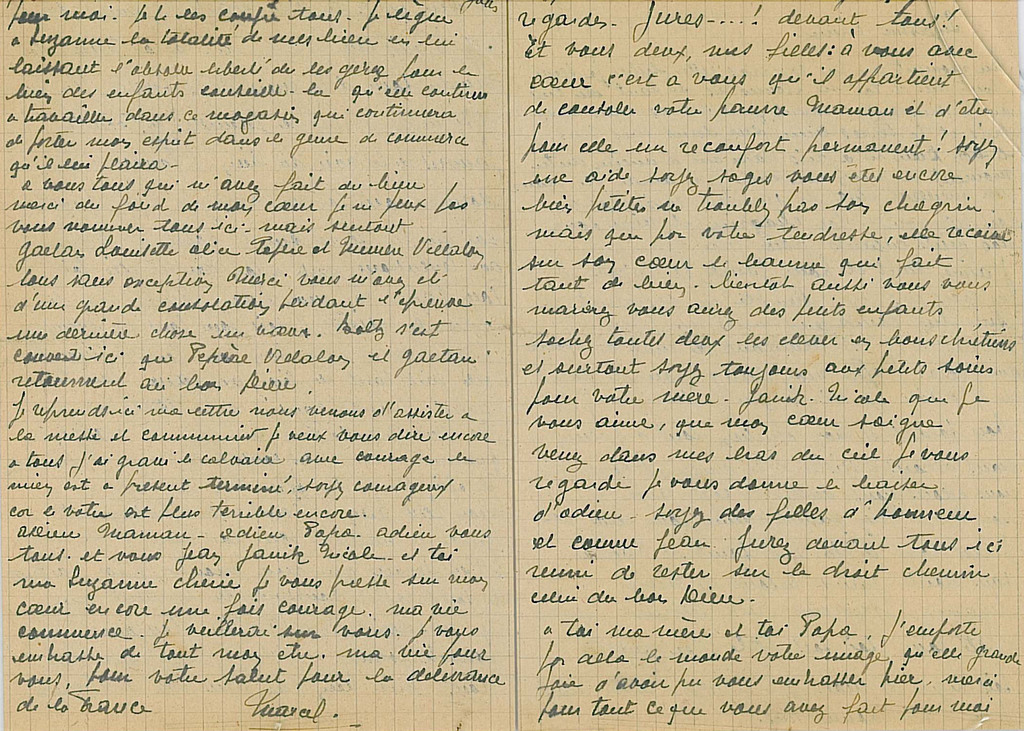 pour moi. Je te les confie tous. Je lègue
a Suzanne la totalité de mes bien en lui
laissant l'absolu liberté de les gérez pour le
bien des enfants conseille-la qu'elle continue
a travailler dans ce magasin qui continuera
de porter mon esprit dans le genre de commerce
qu'il lui plaira -
a vous tous qui m'avez fait du bien
merci du fond de mon cœur je ne peux pas
vous nommer tous ici. mais surtout
Gaetan Louisette alice Pepère et Memere Villalon
tous sans exception Merci vous m'avez été
d'une grande consolation pendant l'épreuve
une dernière chose un vœux. s'est
converti ici que Pepère Villalon et gaetan
retournent au bon Dieu
Je reprends ici ma lettre nous venons d'assister a
la messe et communier je veux vous dire encore
a tous j'ai gravi le calvaire avec courage le
mien est a present terminé, soyez courageux
car le votre est plus terrible encore.
adieu Maman - adieu Papa. adieu vous
tous. et vous Jean Janik Nicole et toi
ma Suzanne cherie je vous presse sur mon
cœur encore une fois courage. ma vie
commence. je veillerai sur vous. je vous
embrasse de tout mon etre. ma vie pour
vous, pour votre salut pour la délivrance
de la France
Marcel.
regardes. Jures-....! devant tous!
Et vous deux, mes filles: à vous avec
cœur c'est a vous qu'il appartient
de consoler votre pauvre Maman et d'être
pour elle un reconfort permanent! soyez
une aide soyez sages vous êtes encore
bien petites ne troublez pas son chagrin
mais que par votre tendresse, elle recoive
sur son cœur le baume qui fait
tant de bien. bientôt aussi vous vous
marirez vous aurez des petits enfants
sachez toutes deux les elever en bons chrétiens
et surtout soyez toujours aux petits soins
pour votre mère. Janik. Nicole que je
vous aime, que mon cœur saigne
venez dans mes bras du ciel je vous
regarde je vous donne le baiser
d'adieu - soyez des filles d'honneur
et comme Jean. Jurez devant tous ici
reuni de rester sur le droit chemin
celui du bon Dieu.
a toi ma mère et toi Papa, j'emporte
par dela le monde votre image, qu'elle grande
joie d'avoir pu vous embrasser hier. merci
pour tout ce que vous avez fait pour moi